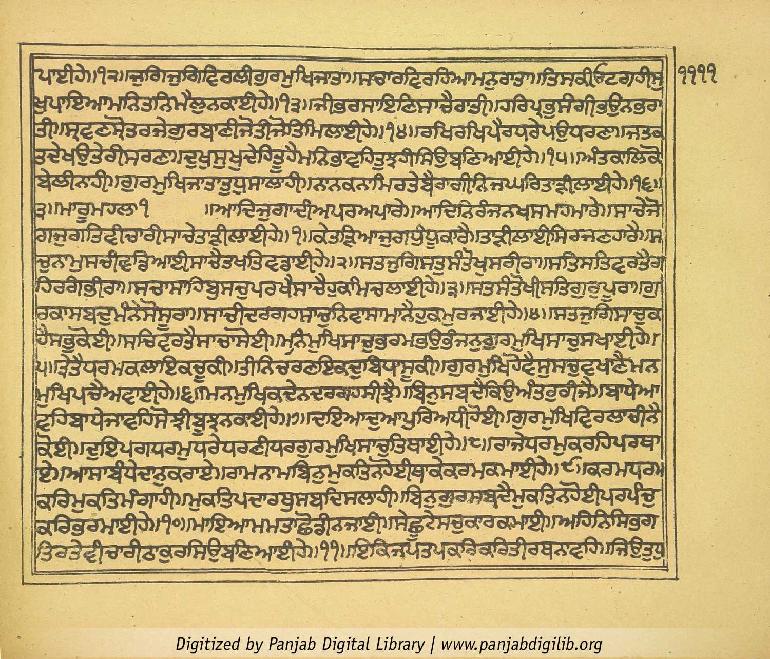 ਪਾਈਹੇ॥੧੨॥ਜੁਗਿਜੁਗਿਵਿਰਲੀਗੁਰਮੁਖਿਜਾਤਾ॥ਸਾਚਾਰਵਿਰਹਿਆਮਨੁਰਾਤਾ॥ਤਿਸਕੀਓਟਗਹੀਸੁ ੧੧੧੧
ਖੁਪਾਇਆਮਨਿਤਨਿਮੈਲੁਨਕਾਈਹੇ॥੧੩॥ਜੀਭਰਸਾਇਣਿਸਾਚੈਰਾਤੀ॥ਹਰਿਪ੍ਰਭੁਸੰਗੀਭਉਨਭਰਾ
ਤੀ॥ਸ੍ਰਵਣਸ੍ਰੋਤਰਜੇਗੁਰਬਾਣੀਜੋਤੀਜੋਤਿਮਿਲਾਈਹੇ॥੧੪॥ਰਖਿਰਖਿਪੈਰਧਰੇਪਉਧਰਣਾ॥ਜਤਕ
ਤਦੇਖਉਤੇਰੀਸਰਣਾ॥ਦੁਖੁਸੁਖੁਦੇਹਿਤੂਹੈਮਨਿਭਾਵਹਿਤੁਝਹੀਸਿਉਬਣਿਆਈਹੇ॥੧੫॥ਅੰਤਕਾਲਿਕੋ
ਬੇਲੀਨਾਹੀ॥ਗੁਰਮੁਖਿਜਾਤਾਤੁਧੁਸਾਲਾਹੀ॥ਨਾਨਕਨਾਮਿਰਤੇਬੈਰਾਗੀਨਿਜਘਰਿਤਾੜੀਲਾਈਹੇ॥੧੬॥
੩॥ਮਾਰੂਮਹਲਾ੧ ॥ਆਦਿਜੁਗਾਦੀਅਪਰਅਪਾਰੇ॥ਆਦਿਨਿਰੰਜਨਖਸਮਹਮਾਰੇ॥ਸਾਚੇਜੋ
ਗਜੁਗਤਿਵੀਚਾਰੀਸਾਚੇਤਾੜੀਲਾਈਹੇ॥੧॥ਕੇਤੜਿਆਜੁਗਧੁੰਧੂਕਾਰੈ॥ਤਾੜੀਲਾਈਸਿਰਜਣਹਾਰੈ॥ਸ
ਚੁਨਾਮੁਸਚੀਵਡਿਆਈਸਾਚੈਤਖਤਿਵਡਾਈਹੇ॥੨॥ਸਤਜੁਗਿਸਤੁਸੰਤੋਖੁਸਰੀਰਾ॥ਸਤਿਸਤਿਵਰਤੈਗ
ਹਿਰਗੰਭੀਰਾ॥ਸਚਾਸਾਹਿਬੁਸਚੁਪਰਖੈਸਾਚੈਹੁਕਮਿਚਲਾਈਹੇ॥੩॥ਸਤਸੰਤੋਖੀਸਤਿਗੁਰੁਪੂਰਾ॥ਗੁ
ਰਕਾਸਬਦੁਮੰਨੇਸੋਸੂਰਾ॥ਸਾਚੀਦਰਗਹਸਾਚੁਨਿਵਾਸਾਮਾਨੈਹੁਕਮੁਰਜਾਈਹੇ॥੪॥ਸਤਜੁਗਿਸਾਚੁਕ
ਹੈਸਭੁਕੋਈ॥ਸਚਿਵਰਤੈਸਾਚਾਸੋਈ॥ਮਨਿਮੁਖਿਸਾਚੁਭਰਮਭਉਭੰਜਨੁਗੁਰਮੁਖਿਸਾਚੁਸਖਾਈਹੇ॥
੫॥ਤ੍ਰੇਤੈਧਰਮਕਲਾਇਕਚੂਕੀ॥ਤੀਨਿਚਰਣਇਕਦੁਬਿਧਾਸੂਕੀ॥ਗੁਰਮੁਖਿਹੋਵੈਸੁਸਚੁਵਖਾਣੈਮਨ
ਮੁਖਿਪਚੈਅਵਾਈਹੇ॥੬॥ਮਨਮੁਖਿਕਦੇਨਦਰਗਹਸੀਝੈ॥ਬਿਨੁਸਬਦੈਕਿਉਅੰਤਰੁਰੀਝੈ॥ਬਾਧੇਆ
ਵਹਿਬਾਧੇਜਾਵਹਿਸੋਝੀਬੂਝਨਕਾਈਹੇ॥੭॥ਦਇਆਦੁਆਪੁਰਿਅਧੀਹੋਈ॥ਗੁਰਮੁਖਿਵਿਰਲਾਚੀਨੈ
ਕੋਈ॥ਦੁਇਪਗਧਰਮੁਧਰੇਧਰਣੀਧਰਗੁਰਮੁਖਿਸਾਚੁਤਿਥਾਈਹੇ॥੮॥ਰਾਜੇਧਰਮੁਕਰਹਿਪਰਥਾ
ਏ॥ਆਸਾਬੰਧੇਦਾਨੁਕਰਾਏ॥ਰਾਮਨਾਮਬਿਨੁਮੁਕਤਿਨਹੋਈਥਾਕੇਕਰਮਕਮਾਈਹੇ॥੯॥ਕਰਮਧਰਮ
ਕਰਿਮੁਕਤਿਮੰਗਾਹੀ॥ਮੁਕਤਿਪਦਾਰਥੁਸਬਦਿਸਲਾਹੀ॥ਬਿਨੁਗੁਰਸਬਦੈਮੁਕਤਿਨਹੋਈਪਰਪੰਚੁ
ਕਰਿਭਰਮਾਈਹੇ॥੧੦॥ਮਾਇਆਮਮਤਾਛੋਡੀਨਜਾਈ॥ਸੇਛੂਟੇਸਚੁਕਾਰਕਮਾਈ॥ਅਹਿਨਿਸਿਭਗ
ਤਿਰਤੇਵੀਚਾਰੀਠਾਕੁਰਸਿਉਬਣਿਆਈਹੇ॥੧੧॥ਇਕਿਜਪਤਪਕਰਿਕਰਿਤੀਰਥਨਾਵਹਿ॥ਜਿਉਤੁਧੁ
Digitized by Panjab Digital Library | www.panjabdigilib.org